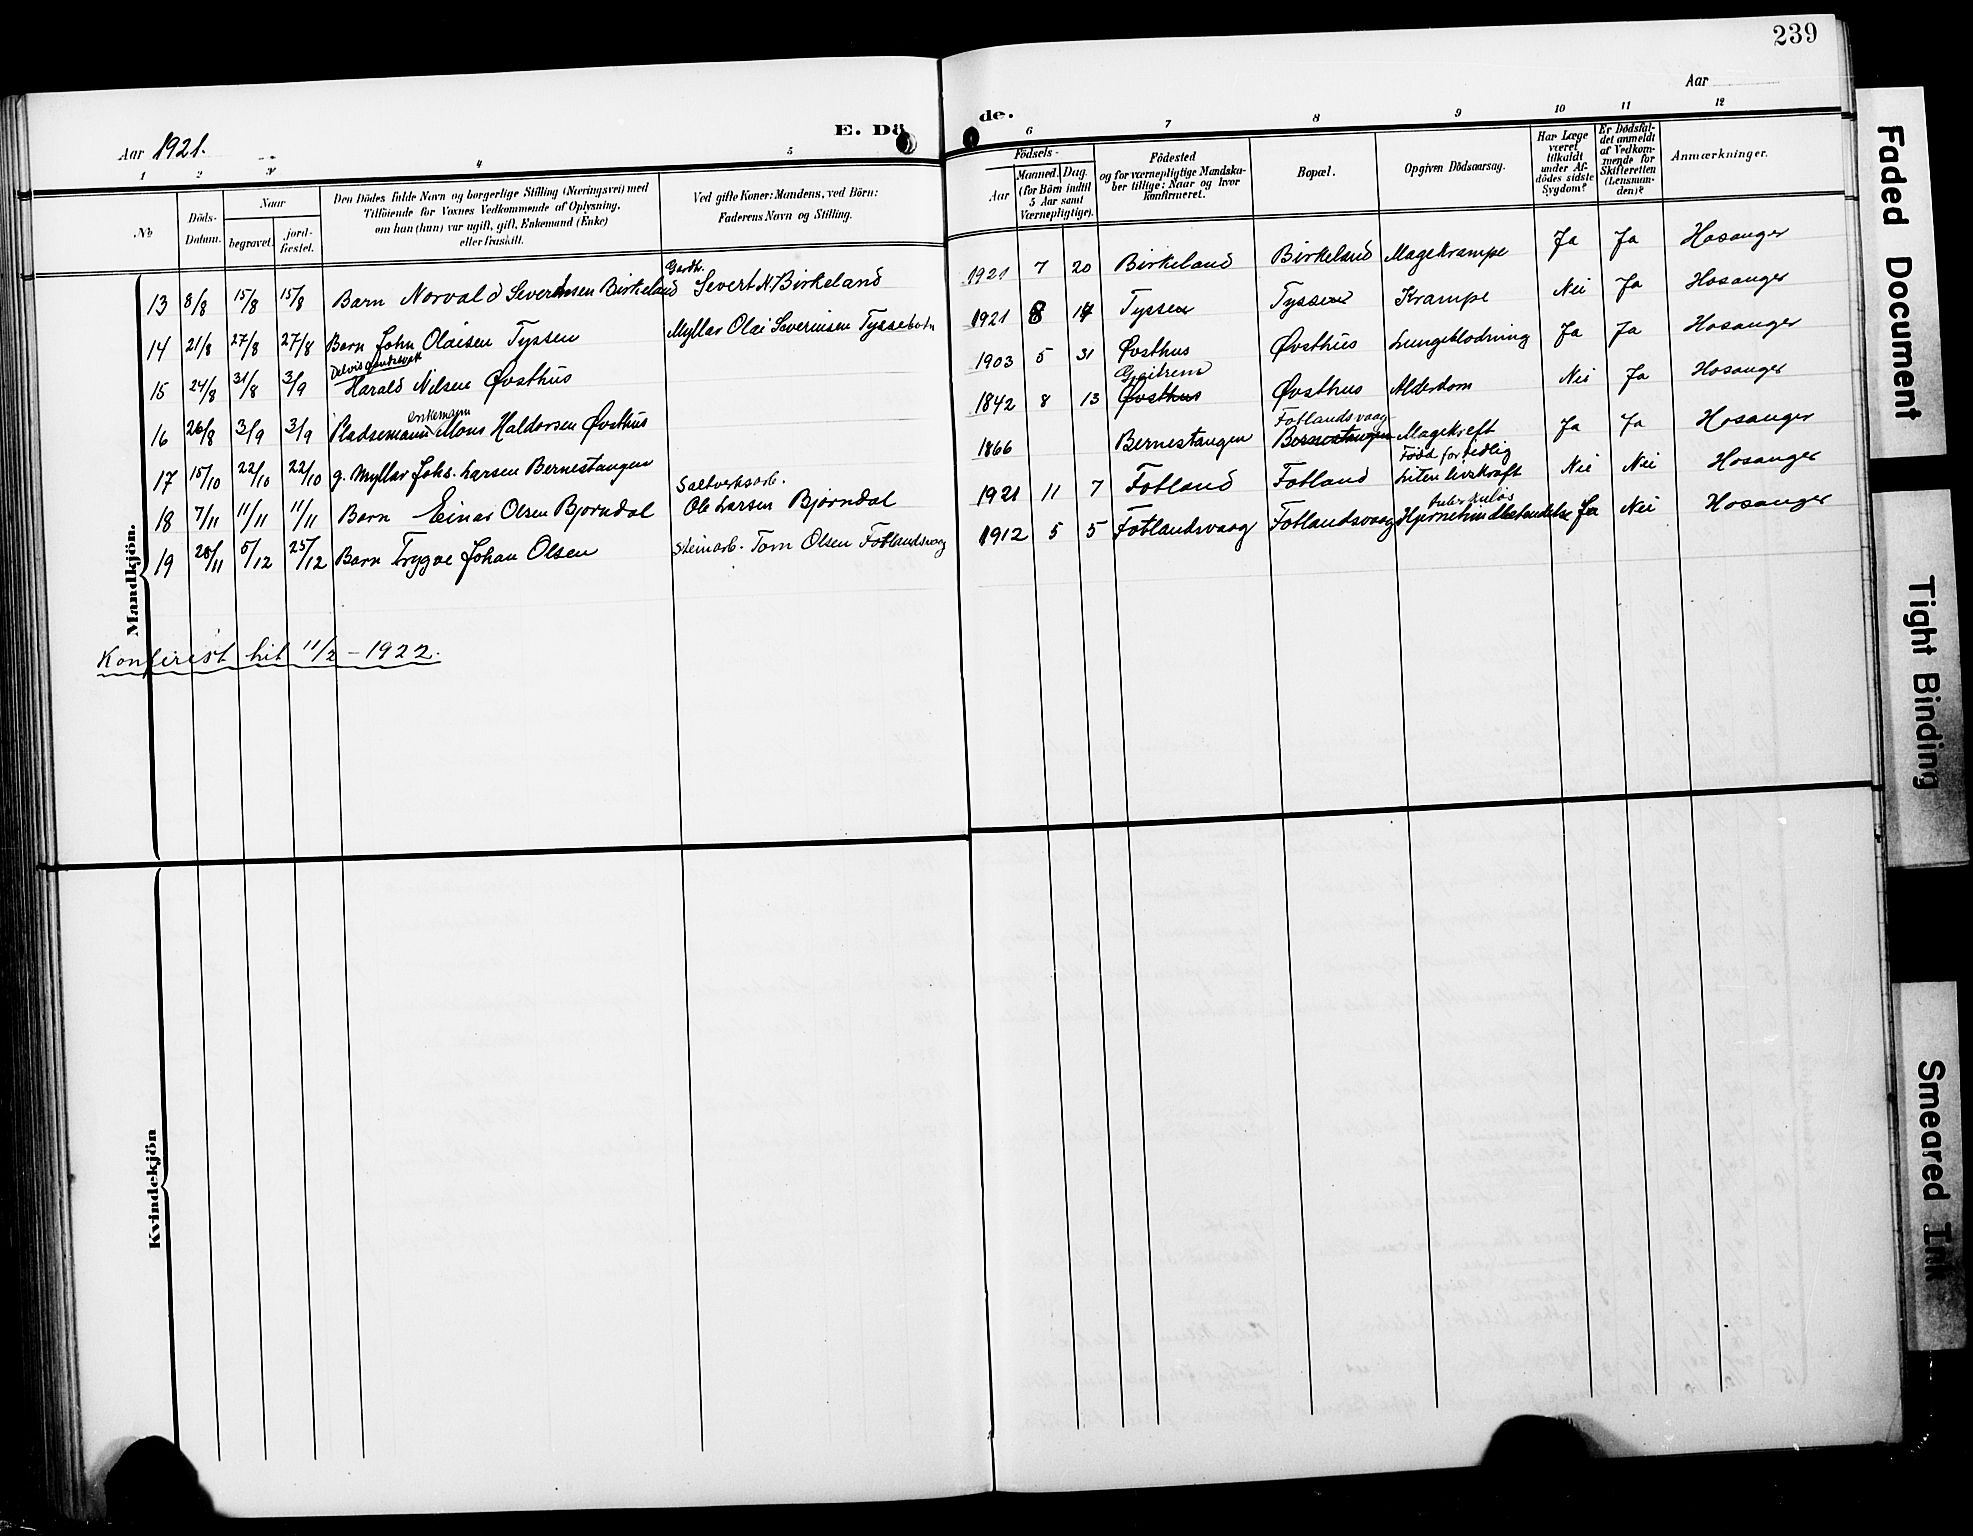 239
Aar 1921.
E. Dö
de.
Aar
1 2 3 4 5 6 7 8 9 10 11 12
No
Döds-
Datum.
Naar
begravet.
jord-
fæstet.
Den Dödes fulde Navn og borgerlige Stilling (Næringsvei) med
Tilföiende for Voxnes Vedkommende af Oplysning,
om han (hun) var ugift, gift, Enkemand (Enke)
eller fraskilt.
Ved gifte Koner: Mandens, ved Börn:
Faderens Navn og Stilling.
Födsels-
Aar
Maaned. Dag.
(for Börn indtil
5 Aar samt
Værnepligtige).
Födested
og for værnepligtige Mandska-
ber tillige: Naar og hvor
konfirmeret.
Bopæl.
Opgiven Dödsaarsag.
Har Læge
været
tilkaldt
under Af-
dödes sidste
Sygdom?
Er Dödsfal-
det anmeldt
af Vedkom-
mende for
Skifteretten
(Lensman-
den)?
Anmærkninger.
Mandkjön.
13 8/8 15/8 15/8 Barn Norvald Severinsen Birkeland Gardbr. Severt N. Birkeland 1921 7 20 Birkeland Birkeland Magekrampe Ja Ja Hosanger
14 21/8 27/8 27/8 Barn John Olaisen Tyssen Myllar Olai Severinsen Tyssebotn 1921 8 14 Tyssen Tyssen Krampe Nei Ja Hosanger
15 24/8 31/8 3/9 Delvis Harald Nilsen Øvsthus 1903 5 31 Øvsthus Øvsthus Lungeblödning Ja Ja Hosanger
16 26/8 3/9 3/9 Pladsemann enkemann Mons Haldorsen Øvsthus 1842 8 13 Øvsthus Øvsthus Alderdom Nei Ja Hosanger
17 15/10 22/10 22/10 g. Myllar Johs. Larsen Bernestangen 1866 Bernestangen Bernestangen Fotlandsvaag Magekreft Ja Ja Hosanger
18 7/11 11/11 11/11 Barn Einar Olsen Bjørndal Saltverksarb. Ole Larsen Bjørndal 1921 11 7 Fotland Fotland Född for tidlig Liten livskraft Nei Nei Hosanger
19 28/11 5/12 25/12 Barn Trygve Johan Olsen Steinarb. Tom Olsen Fotlandsvaag 1912 5 5 Fotlandsvaag Fotlandsvaag tuberkuløs Hjernehindebetændelse Ja Nei Hosanger
Konferert hit 11/2 – 1922.
Kvindekjön
Faded Document
Tight Binding
Smeared Ink